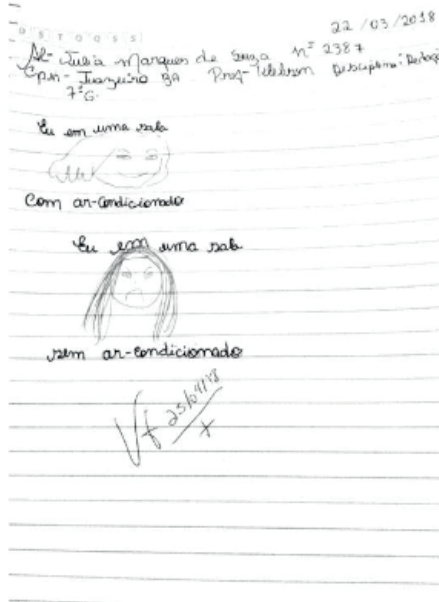 D S T Q Q S S
22/03/2018
Al- Julia Marques de Souza nº 2387
Cpm- Juazeiro Ba Prof- Disciplina:
7ºG.
Eu em uma sala
Com ar-condicionado
Eu em uma sala
sem ar-condicionado
25/04/18